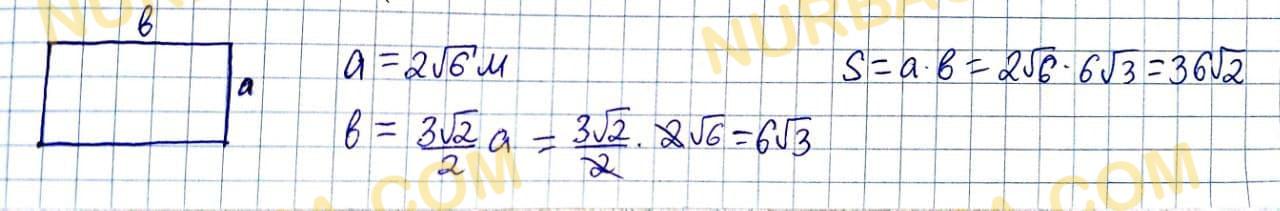 в
a
a = 2√6 м
в = 3√2/2 a = 3√2/2 · 2√6 = 6√3
S = a · в = 2√6 · 6√3 = 36√2
NURBA
.COM
.COM